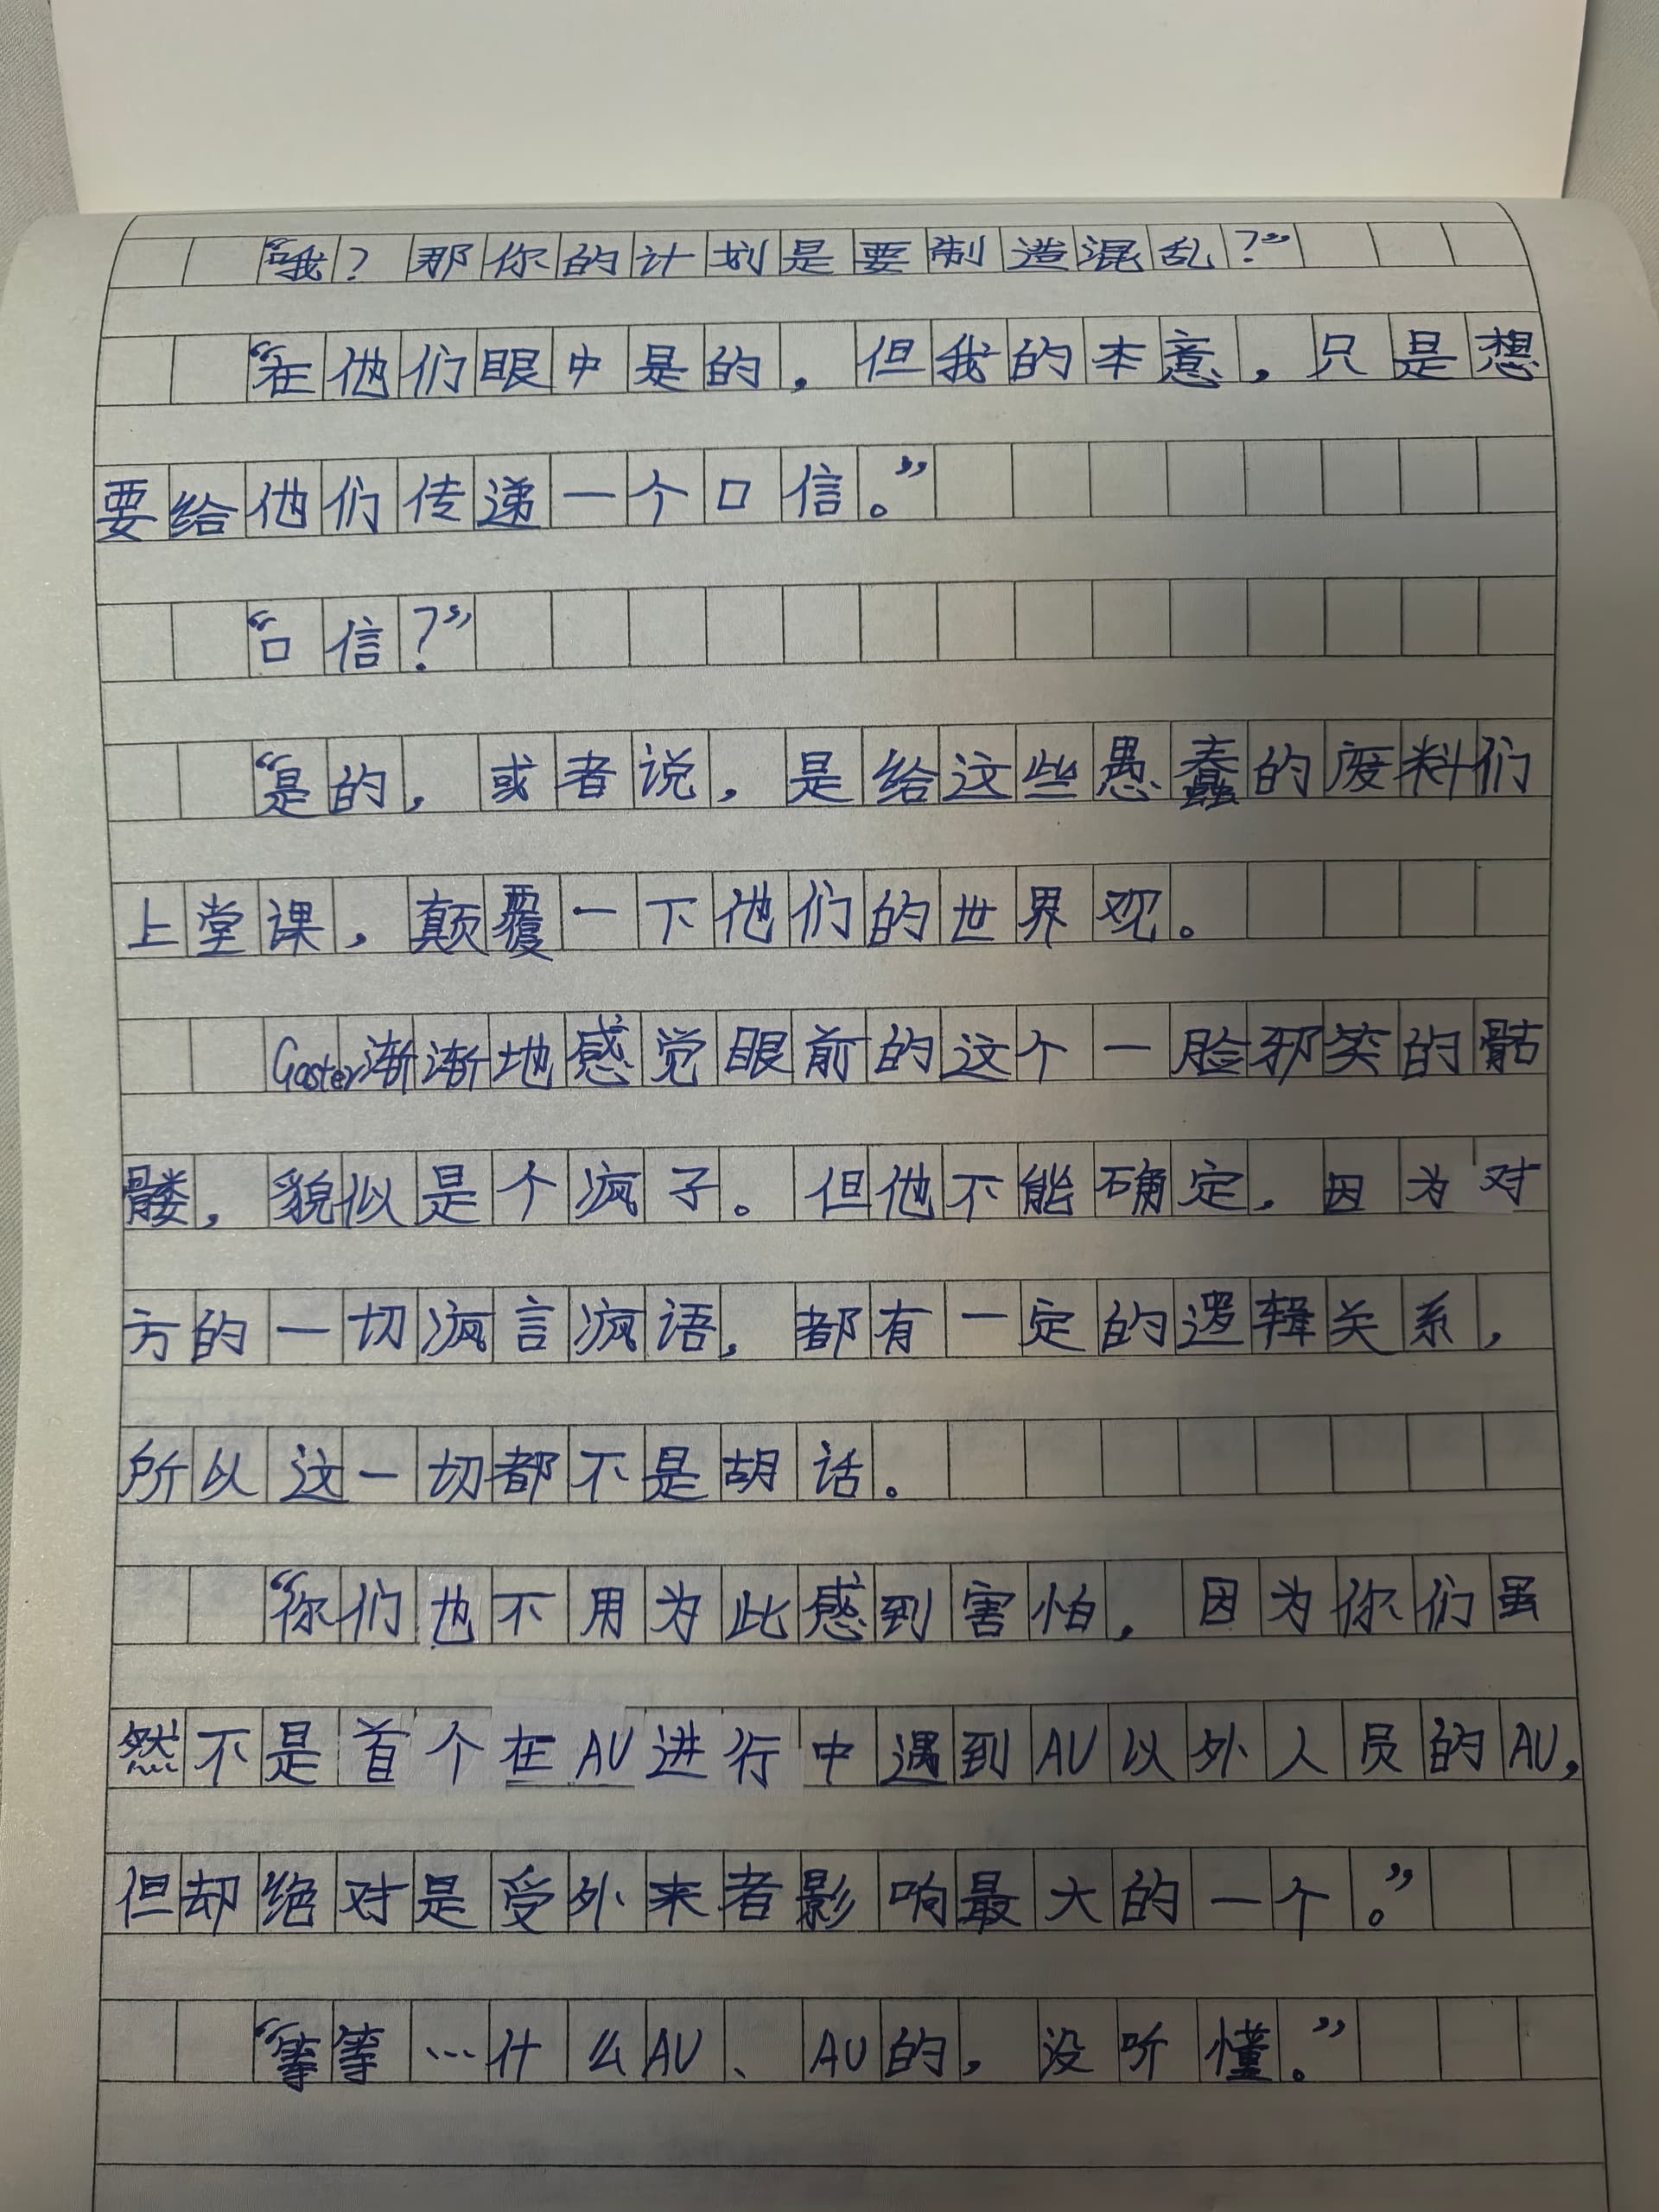 “哦？那你的计划是要制造混乱？”
“在他们眼中是的，但我的本意，只是想
要给他们传递一个口信。”
“口信？”
“是的，或者说，是给这些愚蠢的废料们
上堂课，颠覆一下他们的世界观。
Gaster渐渐地感觉眼前的这个一脸邪笑的骷
髅，貌似是个疯子。但他不能确定，因为对
方的一切疯言疯语，都有一定的逻辑关系，
所以这一切都不是胡话。
“你们也不用为此感到害怕，因为你们虽
然不是首个在AU进行中遇到AU以外人员的AU，
但却绝对是受外来者影响最大的一个。”
“等等…什么AU、AU的，没听懂。”